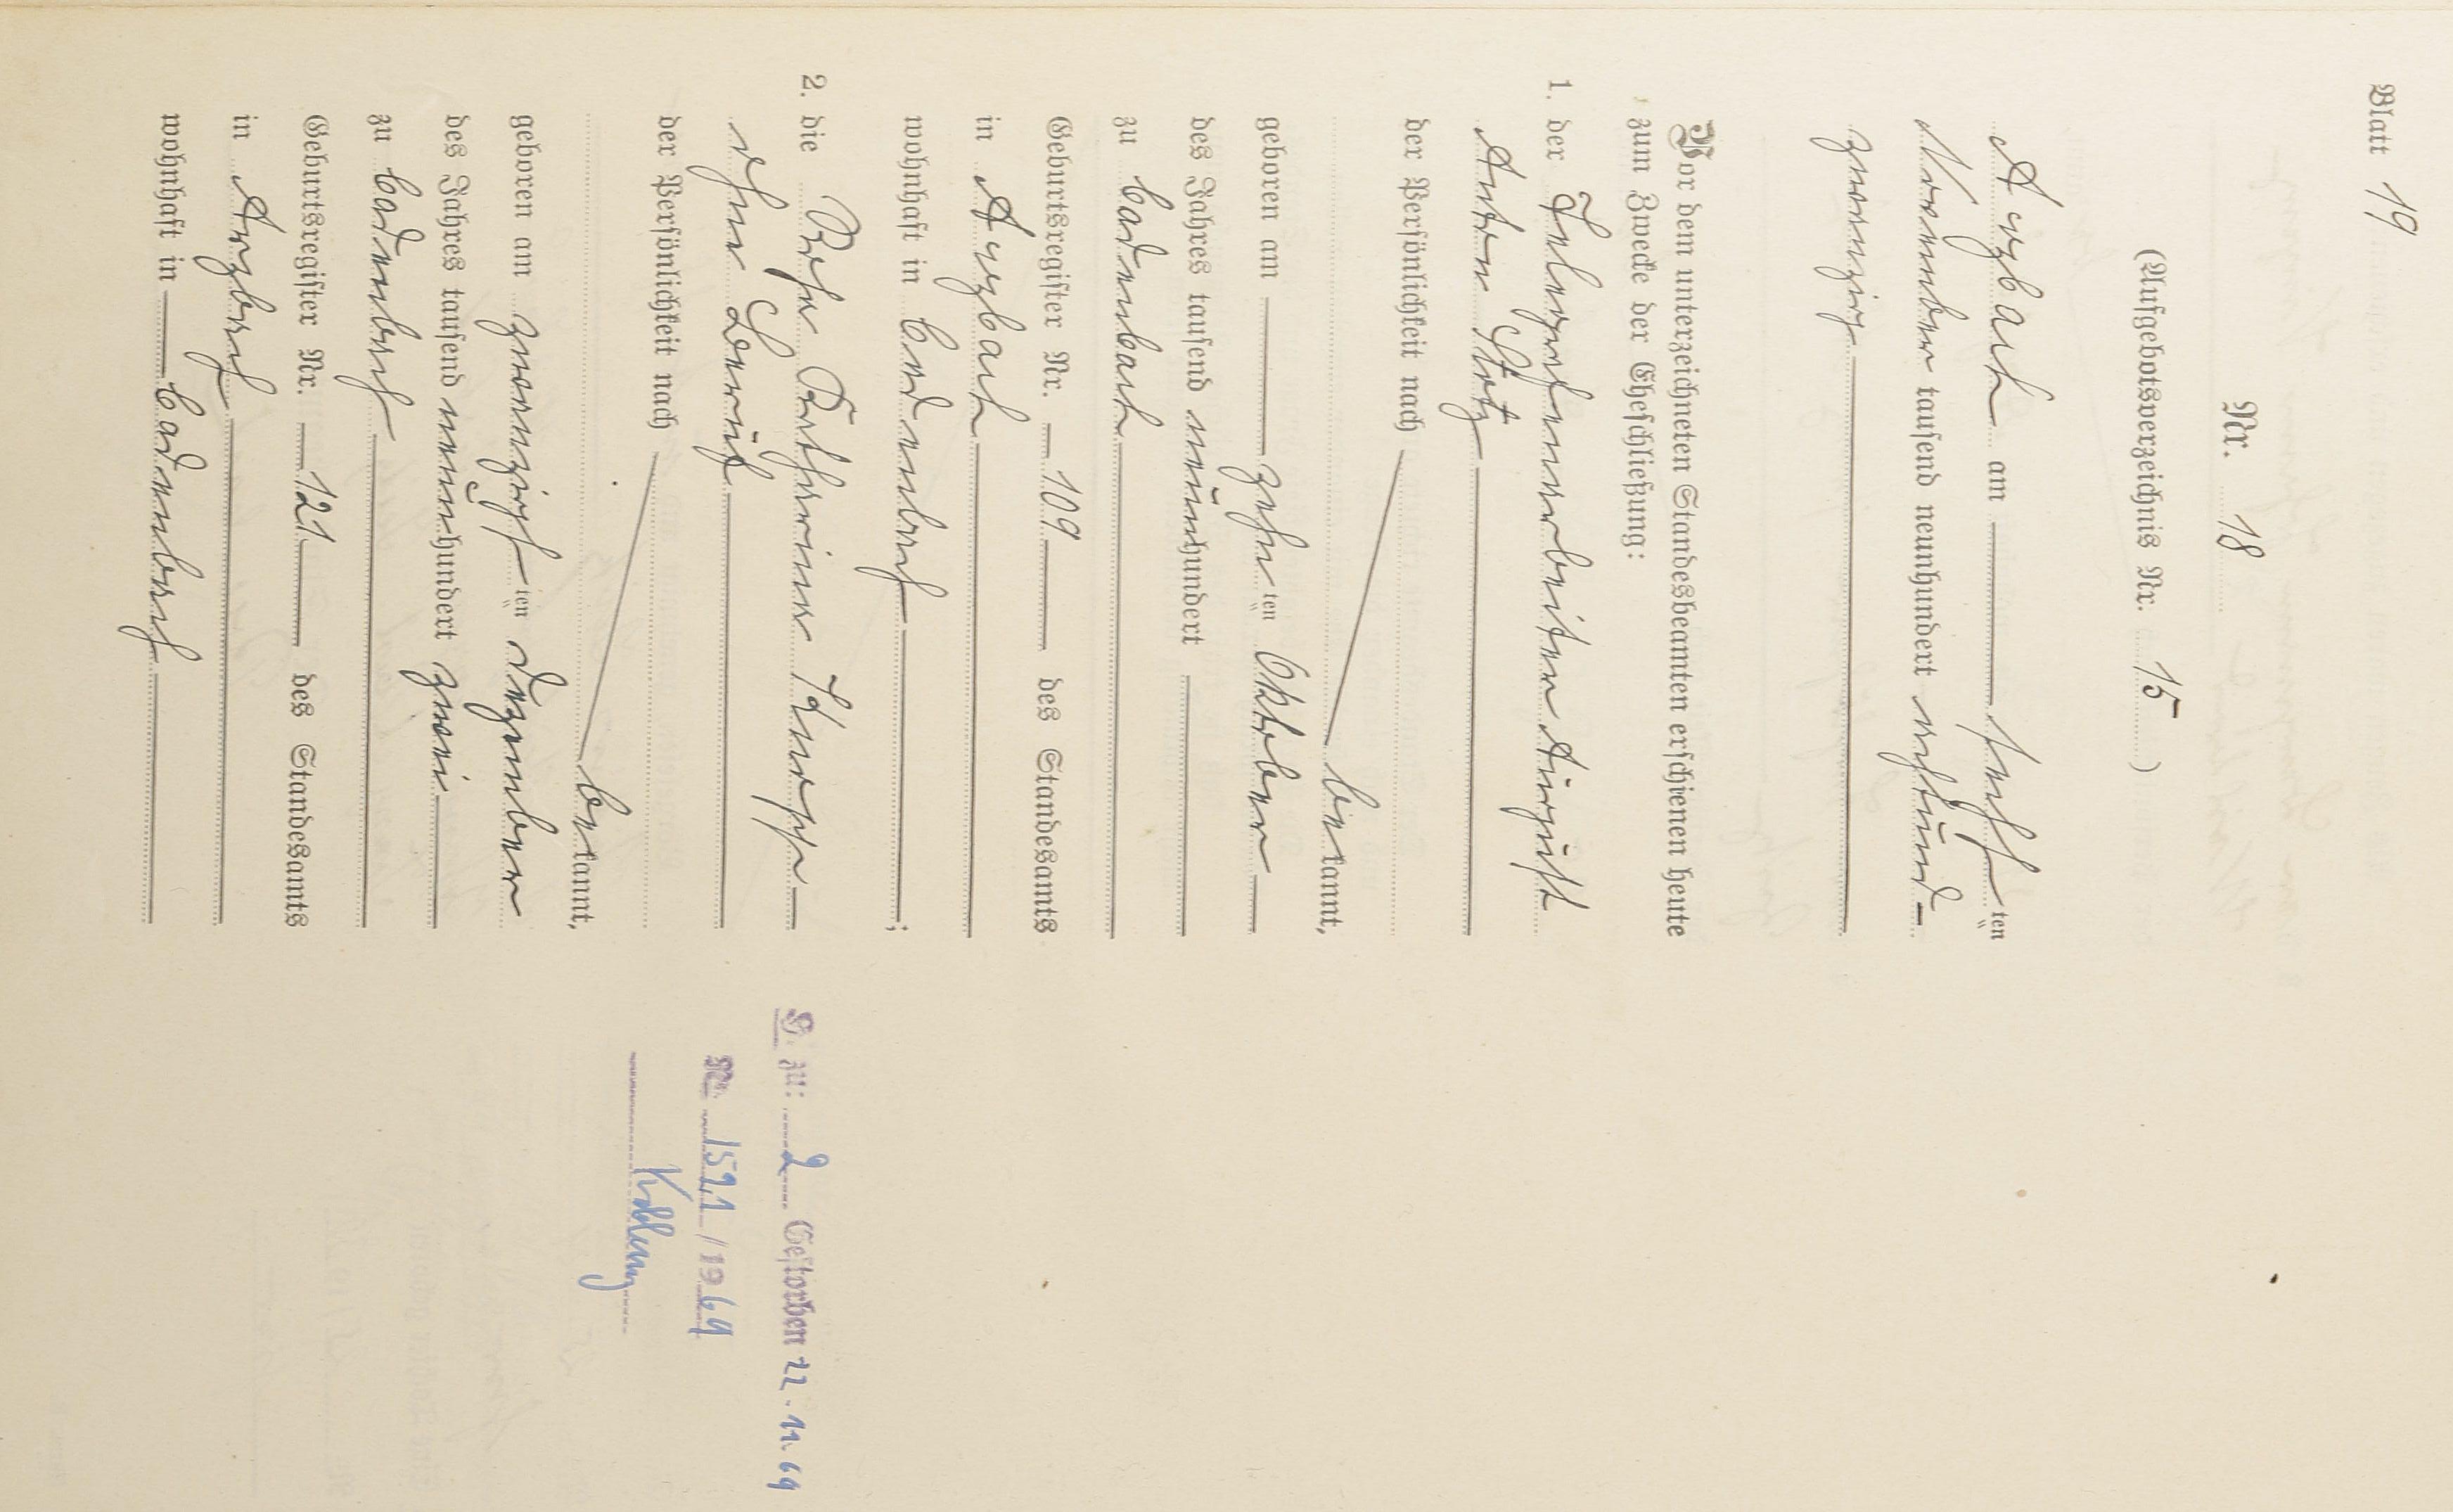 Blatt 19
Nr. 18
(Aufgebotsverzeichnis Nr. 15)
Arzbach am ten
November tausend neunhundert achtund-
zwanzig
Vor dem unterzeichneten Standesbeamten erschienen heute
zum Zwecke der Eheschließung:
1. der Telegrafenarbeiter August
Anton Stotz
der Persönlichkeit nach
bekannt,
geboren am zehnten Oktober
des Jahres tausend neunhundert
zu Cadenbach
Geburtsregister Nr. 109 des Standesamts
in Arzbach
wohnhaft in Cadenbach;
2. die Katharina Knopp
ohne Beruf
der Persönlichkeit nach
bekannt,
geboren am zwanzigsten Dezember
des Jahres tausend neunhundert zwei
zu Cadenbach
Geburtsregister Nr. 121 des Standesamts
in Arzbach
wohnhaft in Cadenbach
H. zu: 2 Gestorben 22.11.69
Nr. 1591/1969
Koblenz